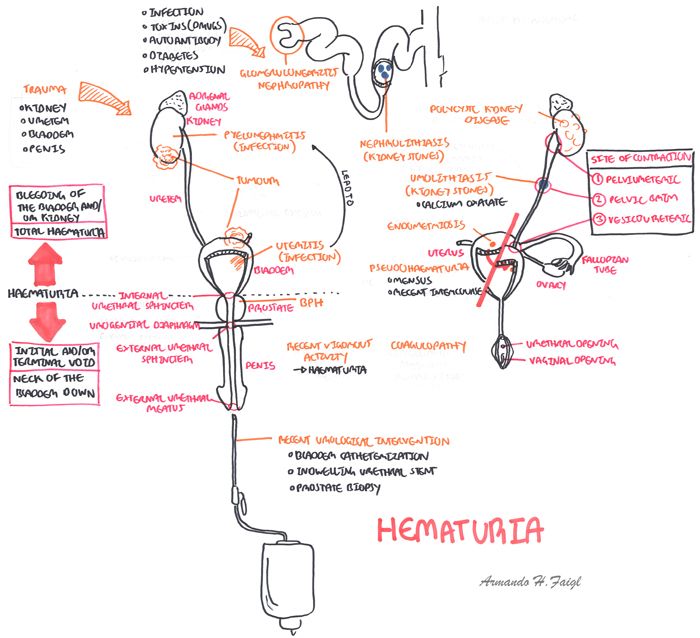 INFECTION
TOXINS (DRUGS)
AUTOANTIBODY
DIABETES
HYPERTENSION
GLOMERULONEPHRITIS
NEPHROPATHY
TRAUMA
KIDNEY
URETER
BLADDER
PENIS
ADRENAL
GLANDS
KIDNEY
PYELONEPHRITIS
(INFECTION)
TUMOUR
URETER
LEAD TO
(INFECTION)
BLADDER
NEPHROLITHIASIS
(KIDNEY STONES)
POLYCYSTIC KIDNEY
DISEASE
UROLITHIASIS
(KIDNEY STONES)
CALCIUM OXALATE
SITE OF CONTRACTION
1 PELVIURETERIC
2 PELVIC BRIM
3 VESICOURETERIC
ENDOMETRIOSIS
UTERUS
PSEUDOHAEMATURIA
MENSUS
RECENT INTERCOURSE
FALLOPIAN
TUBE
OVARY
BLEEDING OF
THE BLADDER AND/
OR KIDNEY
TOTAL HAEMATURIA
HAEMATURIA
INITIAL AND/OR
TERMINAL VOID
NECK OF THE
BLADDER DOWN
INTERNAL
URETHRAL SPHINCTER
PROSTATE
BPH
UROGENITAL DIAPHRAGM
EXTERNAL URETHRAL
SPHINCTER
PENIS
EXTERNAL URETHRAL
MEATUS
RECENT VIGOROUS
ACTIVITY
→ HAEMATURIA
COAGULOPATHY
URETHRAL OPENING
VAGINAL OPENING
RECENT UROLOGICAL INTERVENTION
BLADDER CATHETERIZATION
INDWELLING URETHRAL STENT
PROSTATE BIOPSY
HEMATURIA
Armando H. Faigl